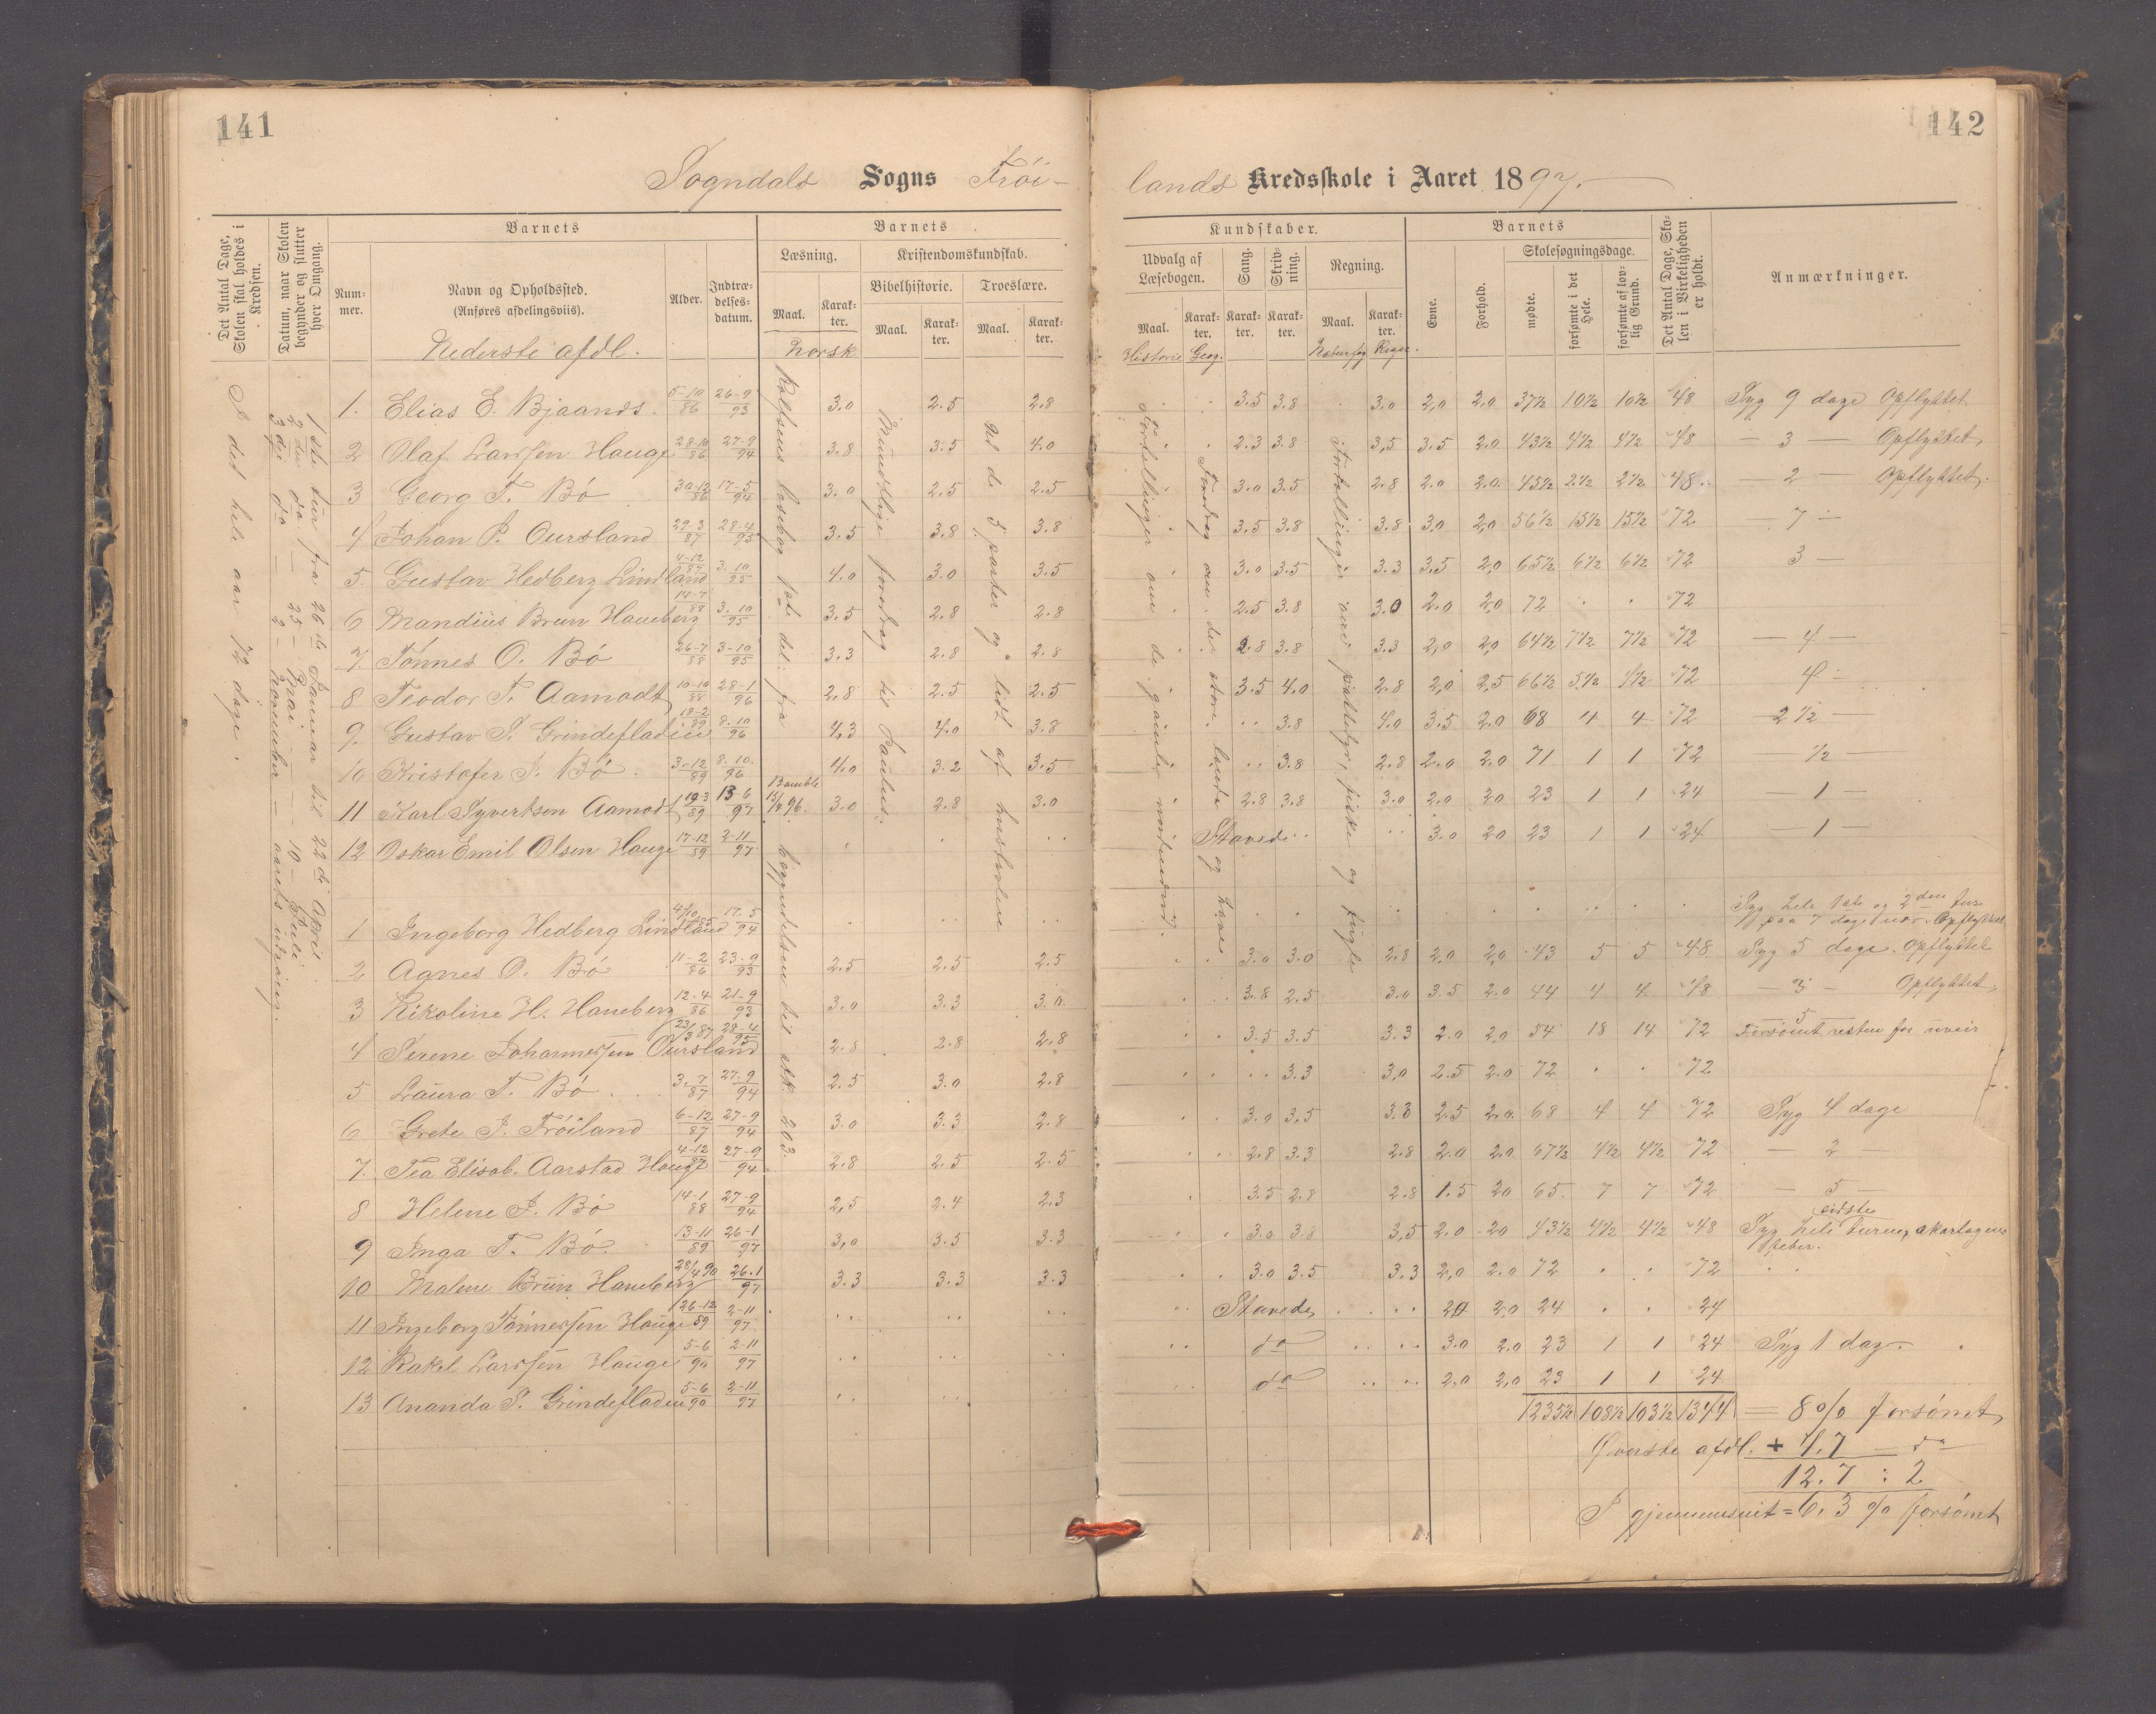 141
142
Sogndals Sogns Frøi-
lands Kredsskole i Aaret 1897.
Det Antal Dage, Skolen skal holdes i Kredsen.
Datum, naar Skolen begynder og slutter hver Omgang.
Barnets
Num-mer.
Navn og Opholdssted.
(Anføres afdelingsviis).
Alder.
Indtræ-delses-datum.
Nederste afdl.
Barnets
Læsning.
Kristendomskundskab.
Bibelhistorie.
Troeslære.
Maal.
Karak-ter.
Maal.
Karak-ter.
Maal.
Karak-ter.
Norsk
Kundskaber.
Udvalg af Læsebogen.
Sang.
Skriv-ning.
Regning.
Maal.
Karak-ter.
Karak-ter.
Karak-ter.
Maal.
Karak-ter.
Historie Geog.
Naturfag Regn.
Barnets
Evne.
Forhold.
Skolesøgningsdage.
mødte.
forsømte i det Hele.
forsømte af lov-lig Grund.
Det Antal Dage, Sko-len i Virkeligheden er holdt.
Anmærkninger.
I det hele aar 72 dage.
1ste tur fra 26de Januar til 22de April
2den do — 25 — Mai — 10 — Juli
3die do — 2 — November — aarets udgang.
begyndelsen til stk 203.
Mundtlige foredrag til Paulus.
til de 3 parter og lidt af hustavlen
Fortellinger om de gamle nordmænd.
Foredrag om de store lande og have
Fortellinger om pattedyr, fiske og fugle
1. Elias E. Bjaands. 5-10/86 26-9/93 3.0 2.5 2.8 3.5 3.8 3.0 2,0 2,0 37½ 10½ 10½ 48 Syg 9 dage Opflyttet
2 Olaf Larssen Hauge 28-10/86 27-9/94 3.8 3.5 4.0 2.3 3.8 3,5 3.5 2.0 43½ 4½ 4½ 48 — 3 — Opflyttet
3 Georg T. Bø 30-12/86 17-5/94 3.0 2.5 2.5 3.0 3.5 2.8 2.0 2.0 45½ 2½ 2½ 48 — 2 — Opflyttet.
4 Johan P. Oursland 29-3/87 28-4/95 3.5 3.8 3.8 3.5 3.8 3.8 3,0 2,0 56½ 15½ 15½ 72 — 7 —
5. Gustav Hedberg Lindland 4-12/87 3-10/95 4.0 3.0 3.5 3.0 3.5 3.3 3,5 2,0 65½ 6½ 6½ 72 3 —
6 Mandius Brun Haneberg 14-7/88 3-10/95 3,5 2.8 2.8 2.5 3.8 3.0 2.0 2,0 72 . . 72
7. Tønnes O. Bø 26-7/88 3-10/95 3.3 2.8 2.8 2.8 3.8 3.3 2,0 2,0 64½ 7½ 7½ 72 — 4 —
8 Teodor T. Aamodt 10-10/88 28-1/96 2.8 2.5 2.5 3.5 4.0 2.8 2,0 2,5 66½ 5½ 5½ 72 4 —
9. Gustav P. Grindefladen 18-2/89 8-10/96 4,3 4.0 3.8 3.8 4.0 3.5 2.0 68 4 4 72 — 2½ —
10 Kristofer J. Bø 3-12/89 8-10/96 4.0 3.2 3.5 3.8 2.8 2.0 2.0 71 1 1 72 — ½ —
11 Karl Syvertsen Aamodt 19-3/89 13-6/97 3.0 2.8 3.0 2.8 3.8 3.0 2.0 2.0 23 1 1 24 — 1 —
12 Oskar Emil Olsen Hauge 17-12/89 2-11/97 Stavede 3.0 2.0 23 1 1 24 — 1 —
1 Ingeborg Hedberg Lindland 4/10 85 17-5/94 Syg hele 1ste og 2den tur paa 7 dage nær. Opflyttet
2 Agnes O. Bø 11-2/86 23-9/93 2.5 2.5 2.5 3.0 3.0 2.8 2,0 2,0 43 5 5 48 Syg 5 dage. Opflyttet
3 Nikoline H. Haneberg 12-4/86 21-9/93 3.0 3.3 3.0 3.8 2.5 3.0 3.5 2.0 44 4 4 48 — 3 — Opflyttet
4 Serene Johannessen Oursland 23/3 87 28-4/95 2.8 2.8 2.8 3.5 3.5 3.3 2.0 2,0 54 18 14 72 5 Forsømt resten for uveir
5 Laura T. Bø 3-7/87 27-9/94 2.5 3.0 2.8 3.3 3,0 2.5 2.0 72 . . 72
6 Grete J. Frøiland 6-12/87 27-9/94 3.0 3.3 2.8 3.0 3,5 3.3 2.5 2.0 68 4 4 72 Syg 4 dage
7. Tea Elisab. Aarstad Hauge 4-12/87 27-9/94 2.8 2.5 2.5 2.8 3.3 2.8 2.0 2.0 67½ 4½ 4½ 72 — 2 —
8 Helene J. Bø 14-1/88 27-9/94 2,5 2.4 2.3 3.5 2.8 2.8 1.5 2.0 65 7 7 72 — 5 —
9 Inga T. Bø 13-11/89 26-1/97 3,0 3.5 3.3 3.0 3.8 3,5 2.0 2.0 43½ 4½ 4½ 48 Syg hele sidste turen, skarlagensfeber.
10 Malene Brun Haneberg 28/4 90 26-1/97 3.3 3.3 3.3 3.0 3.5 3.3 2,0 2.0 72 . . 72
11 Ingeborg Tønnessen Hauge 26-12/89 2-11/97 Stavede 2.0 2,0 24 . . 24
12 Rakel Larssen Hauge 5-6/90 2-11/97 do 3.0 2.0 23 1 1 24 Syg 1 dag.
13 Ananda P. Grindefladen 5-6/90 2-11/97 do 2.0 2,0 23 1 1 24
1235½ 108½ 103½ 1344 = 8 % forsømt
Øverste afdl. + 4.7 — do —
12.7 : 2
I gjennemsnit = 6.3 % forsømt